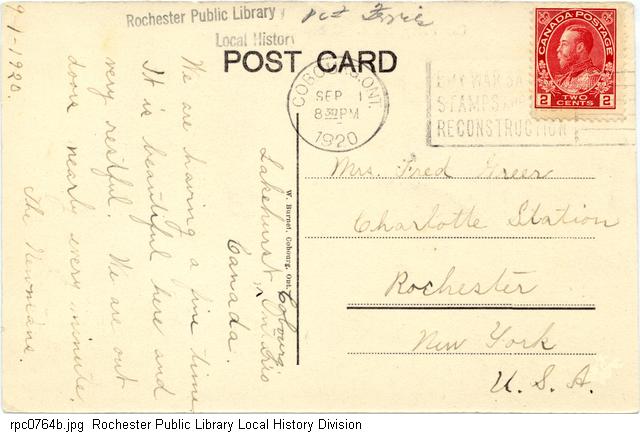 Rochester Public Library
Local History
POST CARD
COBOURG, ONT.
SEP 1
8 30 PM
1920
BUY WAR SA
STAMPS
RECONSTRUCTION
CANADA POSTAGE
2 2
TWO
CENTS
9-1-1920.
We are having a fine time
It is beautiful here and
very restful. We are out
doors nearly every minute.
The Newmans.
Lakehurst
Cobourg
Ontario
Canada.
W. Burnet, Cobourg, Ont.
Mrs. Fred Greer
Charlotte Station
Rochester
New York
U.S.A.
rpc0764b.jpg Rochester Public Library Local History Division